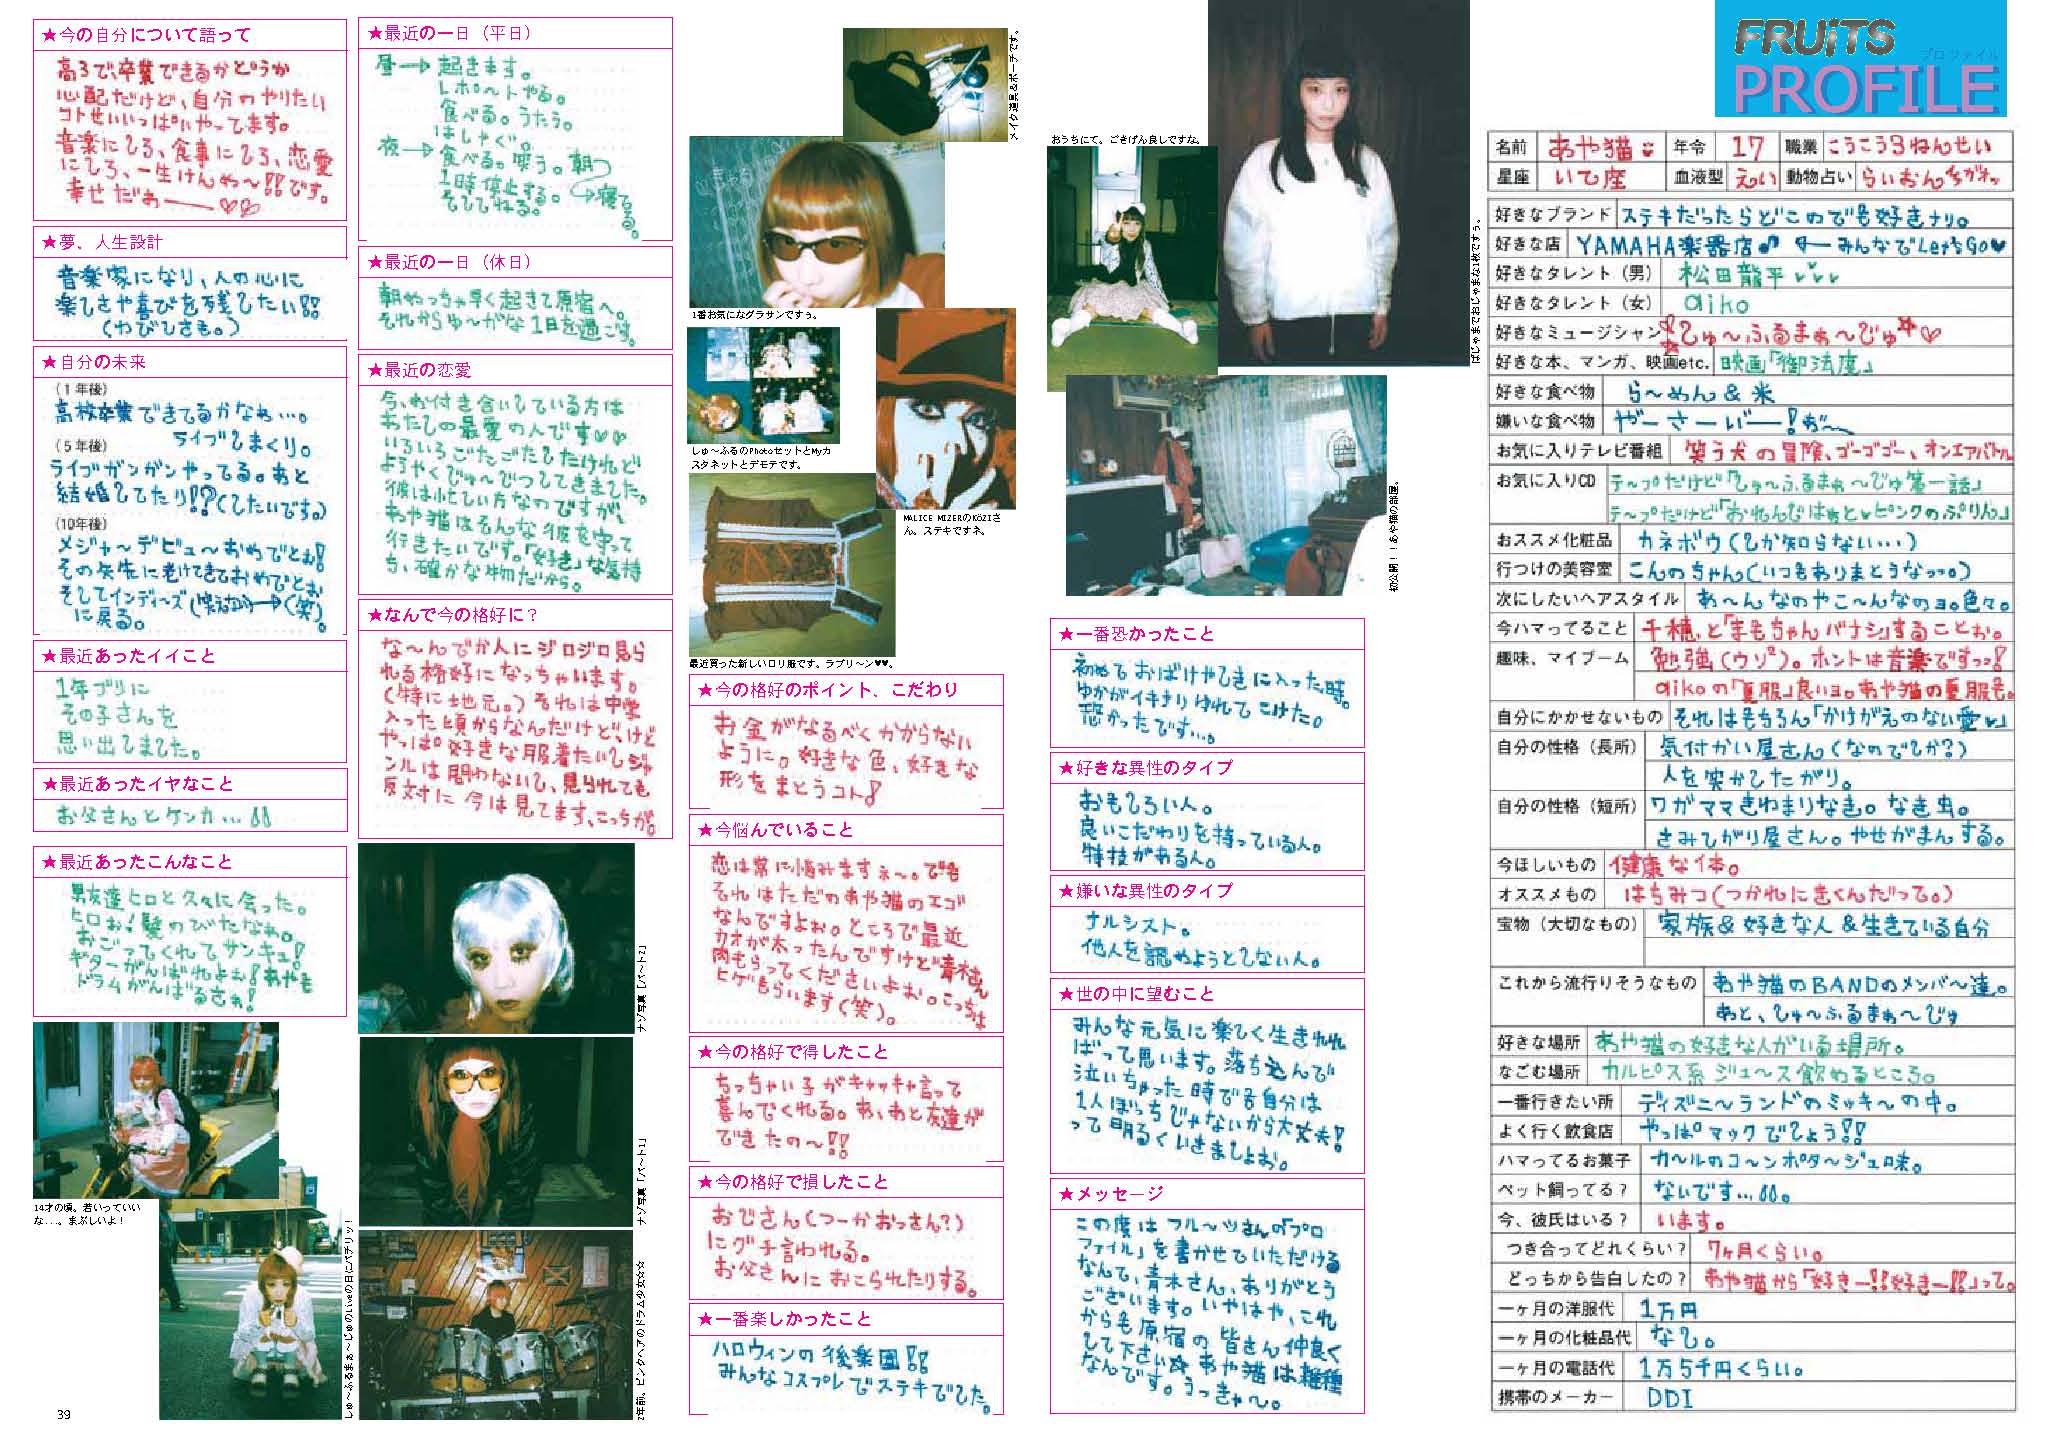 FRUiTS
プロファイル
PROFILE
名前 あや猫 年令 17 職業 こうこう3ねんせい
星座 いて座 血液型 えい 動物占い らいおん ちがオッ
好きなブランド ステキだったらどこのでも好きナリ。
好きな店 YAMAHA楽器店♪ ←みんなでLet's Go♥
好きなタレント（男） 松田龍平
好きなタレント（女） aiko
好きなミュージシャン しゅ〜ふるまぁ〜じゅ
好きな本、マンガ、映画etc. 映画「御法度」
好きな食べ物 ら〜めん & 米
嫌いな食べ物 やーさーいー!
お気に入りテレビ番組 笑う犬の冒険、ゴーゴゴー、オンエアバトル
お気に入りCD テ〜プだけど「しゅ〜ふるまぁ〜じゅ第一話」
テ〜プだけど「おれんじはぁと♥ピンクのぷりん」
おススメ化粧品 カネボウ(しか知らない…)
行つけの美容室 こんのちゃん(いつもありまとうなっっ。)
次にしたいヘアスタイル あ〜んなのやこ〜んなのョ。色々。
今ハマってること 千穂と「まもちゃんバナシ」することぉ。
趣味、マイブーム 勉強(ウソ°)。ホントは音楽ですっっ!
aikoの「夏服」良いョ。あや猫の夏服も。
自分にかかせないもの それはもちろん「かけがえのない愛♥」
自分の性格（長所） 気付かい屋さん(なのでしか?)
人を笑かしたがり。
自分の性格（短所） ワガママきわまりなき。なき虫。
さみしがり屋さん。やせがまんする。
今ほしいもの 健康な体。
オススメもの はちみつ(つかれにきくんだって。)
宝物（大切なもの） 家族&好きな人&生きている自分
これから流行りそうなもの あや猫のBANDのメンバ〜達。
あと、しゅ〜ふるまぁ〜じゅ
好きな場所 あや猫の好きな人がいる場所。
なごむ場所 カルピス系ジュ〜ス飲めるところ。
一番行きたい所 ディズニ〜ランドのミッキ〜の中。
よく行く飲食店 やっぱマックでしょう!!
ハマってるお菓子 カ〜ルのコ〜ンポタ〜ジュ味。
ペット飼ってる？ ないです…。
今、彼氏はいる？ います。
つき合ってどれくらい？ 7ヶ月くらい。
どっちから告白したの？ あや猫から「好きー!!好きー!!」って。
一ヶ月の洋服代 1万円
一ヶ月の化粧品代 なし。
一ヶ月の電話代 1万5千円くらい。
携帯のメーカー DDI
ぱじゃまでおじゃまな1枚ですぅ。
おうちにて。ごきげん良しですな。
初公開！！あや猫の部屋。
★一番恐かったこと
初めておばけやしきに入った時。
ゆかがイキナリゆれてこけた。
恐かったです…。
★好きな異性のタイプ
おもしろい人。
良いこだわりを持っている人。
特技がある人。
★嫌いな異性のタイプ
ナルシスト。
他人を認めようとしない人。
★世の中に望むこと
みんな元気に楽しく生きれれ
ばって思います。落ち込んで
泣いちゃった時でも自分は
1人ぼっちじゃないから大丈夫!
って明るくいきましょお。
★メッセージ
この度はフル〜ツさんの「プロ
ファイル」を書かせていただける
なんて、青木さん、ありがとう
ございます。いやはや、これ
からも原宿の皆さん仲良く
して下さい☆あや猫は雑種
なんです。うっきゃ〜。
メイク道具&ポーチです。
1番お気になグラサンですぅ。
しゅ〜ふるのPhotoセットとMyカ
スタネットとデモテです。
MALICE MIZERのKöZiさ
ん。ステキですネ。
最近買った新しいロリ服です。ラブリ〜ン♥♥。
★今の格好のポイント、こだわり
お金がなるべくかからない
ように。好きな色、好きな
形をまとうコト!
★今悩んでいること
恋は常に悩みますネ〜。でも
それはただのあや猫のエゴ
なんですよぉ。ところで最近
カオが太ったんですけど青木さん
肉もらってくださいよぉ。こっちは
ヒゲもらいます(笑)。
★今の格好で得したこと
ちっちゃい子がキャッキャ言って
喜んでくれる。あ、あと友達が
できたの〜!!
★今の格好で損したこと
おじさん(つーかおっさん?)
にグチ言われる。
お父さんにおこられたりする。
★一番楽しかったこと
ハロウィンの後楽園!!
みんなコスプレでステキでした。
★最近の一日（平日）
昼→起きます。
レポ〜トやる。
食べる。うたう。
はしゃぐ。
夜→食べる。笑う。朝
1時停止する。
そしてねる。→寝てる。
★最近の一日（休日）
朝めっちゃ早く起きて原宿へ。
それからゆ〜がな1日を過ごす。
★最近の恋愛
今、お付き合いしている方は
あたしの最愛の人です♡♡
いろいろごたごたしたけれど
ようやくじゅ〜じつしてきました。
彼は忙しい方なのですが、
あや猫はそんな彼を守って
行きたいです。「好き」な気持
ち、確かな物だから。
★なんで今の格好に？
な〜んでか人にジロジロ見ら
れる格好になっちゃいます。
(特に地元。)それは中学
入った頃からなんだけど、けど
やっぱ好きな服着たいしジャ
ンルは問わないし、見られても
反対に今は見てます、こっちが。
ナゾ写真「パ〜ト2」
ナゾ写真「パ〜ト1」
2年前。ピンクヘアのドラム少女☆☆
★今の自分について語って
高3で、卒業できるかどうか
心配だけど、自分のやりたい
コトせいいっぱいやってます。
音楽にしろ、食事にしろ、恋愛
にしろ、一生けんめ〜!!です。
幸せだぁー♡♡
★夢、人生設計
音楽家になり、人の心に
楽しさや喜びを残したい!!
(わびしさも。)
★自分の未来
（1年後）
高校卒業できてるかなぁ…。
ライブしまくり。
（5年後）
ライブガンガンやってる。あと
結婚してたり!?(したいです。)
（10年後）
メジャ〜デビュ〜おめでとぉ!
その矢先に老けてきておめでとぉ
そしてインディーズ→(笑)
に戻る。
★最近あったイイこと
1年ブリに
その子さんを
思い出てました。
★最近あったイヤなこと
お父さんとケンカ…
★最近あったこんなこと
男友達ヒロと久々に会った。
ヒロぉ!髪のびたなぁ。
おごってくれてサンキュ!
ギターがんばれよぉ!あやも
ドラムがんばるさぁ!
14才の頃。若いっていい
な...。まぶしいよ！
しゅ〜ふるまぁ〜じゅのLiveの日にパチリッ！
39